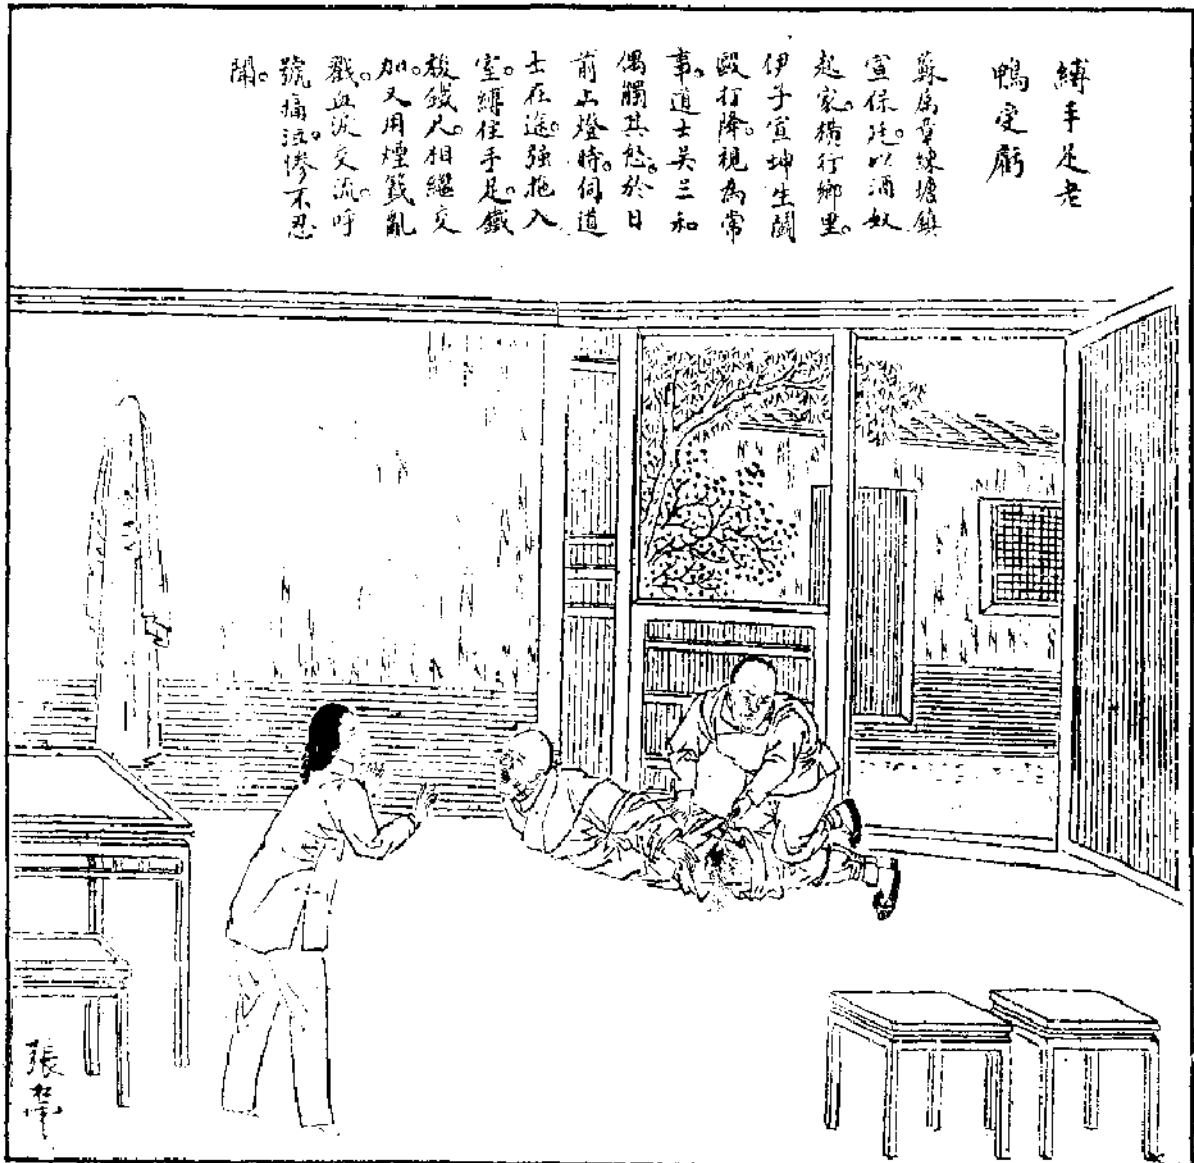 縛手足老
鴨受虧
蘇屬章練塘鎮
宣保廷。以酒奴
起家。橫行鄉里。
伊子宣坤生鬭
毆打降。視爲常
事。道士吳三和
偶觸其怒。於日
前上燈時。伺道
士在途。強拖入
室。縛住手足。鐵
梭鐵尺。相繼交
加。又用煙籤亂
戳。血淚交流。呼
號痛泣。慘不忍
聞。
張松